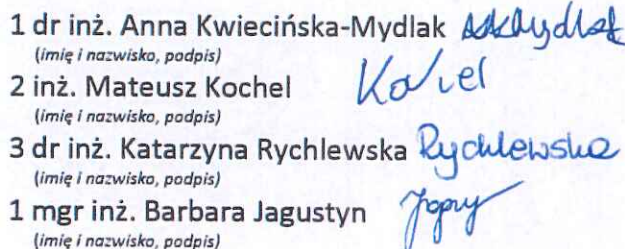 1 dr inż. Anna Kwiecińska-Mydlak
(imię i nazwisko, podpis)
2 inż. Mateusz Kochel Kochel
(imię i nazwisko, podpis)
3 dr inż. Katarzyna Rychlewska Rychlewska
(imię i nazwisko, podpis)
1 mgr inż. Barbara Jagustyn
(imię i nazwisko, podpis)